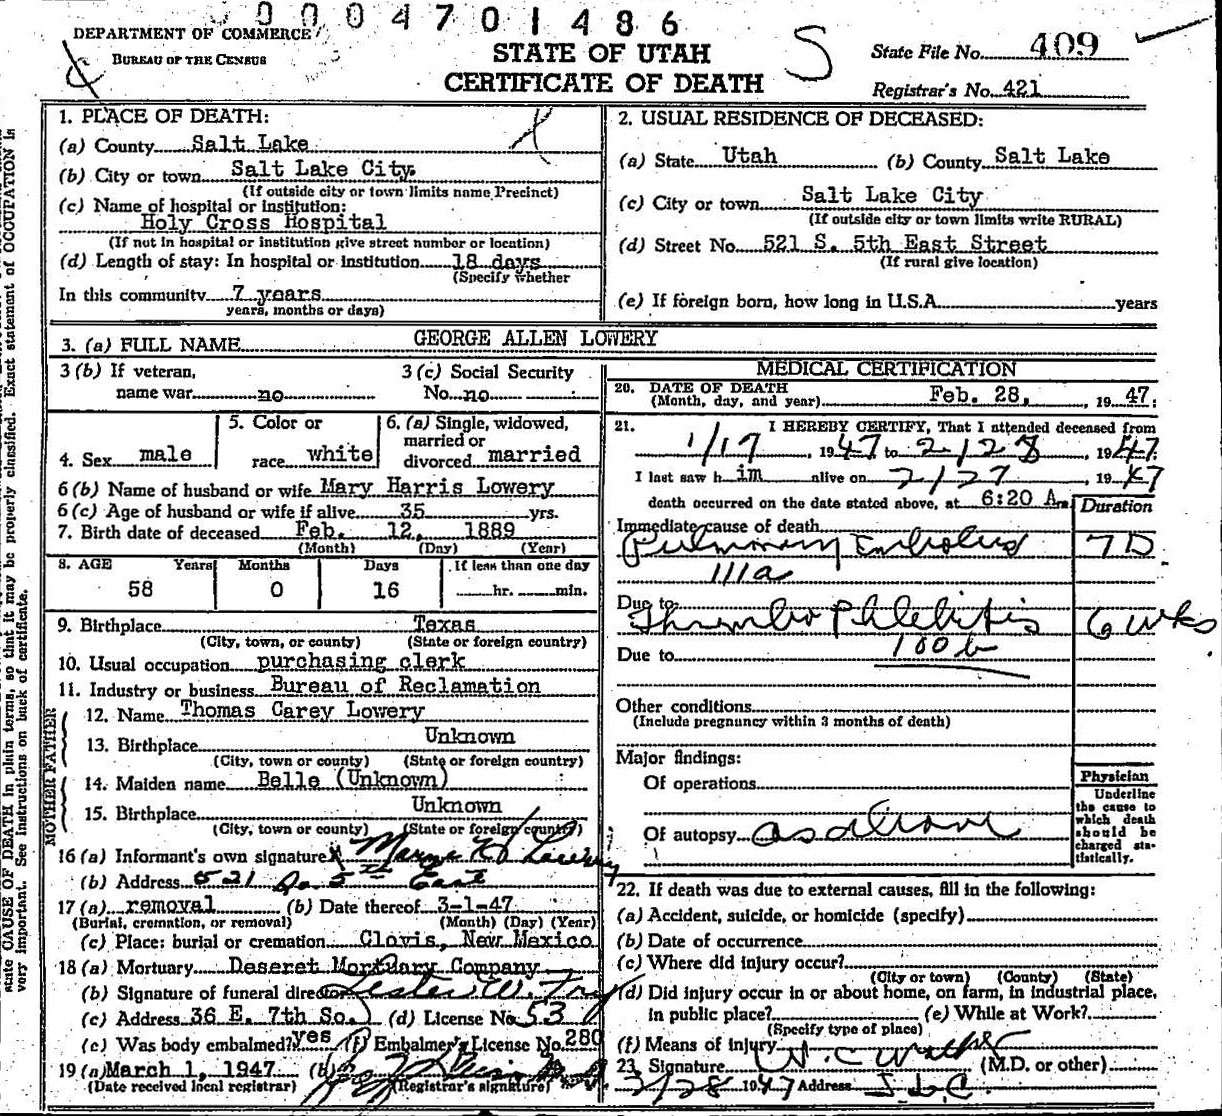 0004701486
DEPARTMENT OF COMMERCE
BUREAU OF THE CENSUS
STATE OF UTAH
CERTIFICATE OF DEATH
S
State File No. 409
Registrar's No. 421
state CAUSE OF DEATH in plain terms, so that it may be properly classified. Exact statement of OCCUPATION is
very important. See instructions on back of certificate.
1. PLACE OF DEATH:
(a) County Salt Lake
(b) City or town Salt Lake City.
(If outside city or town limits name Precinct)
(c) Name of hospital or institution:
Holy Cross Hospital
(If not in hospital or institution give street number or location)
(d) Length of stay: In hospital or institution 18 days
(Specify whether
In this community 7 years
years, months or days)
2. USUAL RESIDENCE OF DECEASED:
(a) State Utah (b) County Salt Lake
(c) City or town Salt Lake City
(If outside city or town limits write RURAL)
(d) Street No. 521 S. 5th East Street
(If rural give location)
(e) If foreign born, how long in U.S.A. years
3. (a) FULL NAME GEORGE ALLEN LOWERY
3 (b) If veteran, 3 (c) Social Security
name war no No. no
4. Sex male
5. Color or
race white
6. (a) Single, widowed,
married or
divorced married
6 (b) Name of husband or wife Mary Harris Lowery
6 (c) Age of husband or wife if alive 35 yrs.
7. Birth date of deceased Feb. 12, 1889
(Month) (Day) (Year)
8. AGE Years Months Days If less than one day
58 0 16 hr. min.
9. Birthplace Texas
(City, town, or county) (State or foreign country)
10. Usual occupation purchasing clerk
11. Industry or business Bureau of Reclamation
MOTHER FATHER
12. Name Thomas Carey Lowery
13. Birthplace Unknown
(City, town, or county) (State or foreign country)
14. Maiden name Belle (Unknown)
15. Birthplace Unknown
(City, town, or county) (State or foreign country)
16 (a) Informant's own signature X H Lowery
(b) Address 521 So. 5th East
17 (a) removal (b) Date thereof 3-1-47
(Burial, cremation, or removal) (Month) (Day) (Year)
(c) Place: burial or cremation Clovis, New Mexico
18 (a) Mortuary Deseret Mortuary Company
(b) Signature of funeral director Lester W. Fry
(c) Address 36 E. 7th So. (d) License No. 53
(e) Was body embalmed? yes (f) Embalmer's License No. 280
19 (a) March 1, 1947 (b)
(Date received local registrar) (Registrar's signature)
MEDICAL CERTIFICATION
20. DATE OF DEATH
(Month, day, and year) Feb. 28, , 19 47.
21. I HEREBY CERTIFY, That I attended deceased from
1/17, 1947 to 2/28, 1947.
I last saw him alive on 2/27, 1947
death occurred on the date stated above, at 6:20 A m.
Duration
Immediate cause of death
Pulmonary Embolus 7 D
111a
Due to
Thrombo Phlebitis 6 wks
Due to 100 b
Other conditions
(Include pregnancy within 3 months of death)
Major findings:
Of operations
Of autopsy as above
Physician
Underline
the cause to
which death
should be
charged sta-
tistically.
22. If death was due to external causes, fill in the following:
(a) Accident, suicide, or homicide (specify)
(b) Date of occurrence
(c) Where did injury occur?
(City or town) (County) (State)
(d) Did injury occur in or about home, on farm, in industrial place,
in public place? (e) While at Work?
(Specify type of place)
(f) Means of injury
23. Signature (M.D. or other)
1947 Address S.L.C.